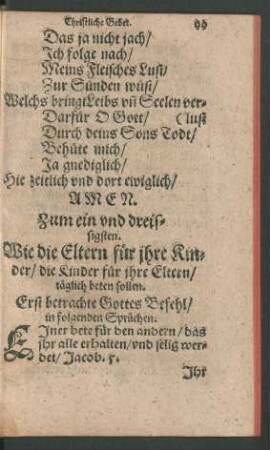 Christliche Gebet. 99
Das ja nicht jach/
Ich folge nach/
Meins Fleisches Lust/
Zur Sünden wüst/
Welchs bringt Leibs vñ Seelen ver-
Darfür O Gott/ (lust
Durch deins Sons Todt/
Behüte mich/
Ja gnediglich/
Hie zeitlich vnd dort ewiglich/
A M E N.
Zum ein vnd dreis-
sigsten.
Wie die Eltern für jhre Kin-
der/ die Kinder für jhre Eltern/
täglich beten sollen.
Erst betrachte Gottes Befehl/
in folgenden Sprüchen.
EJner bete für den andern/ das
jhr alle erhalten/ vnd selig wer-
det/ Jacob. 5.
Jhr